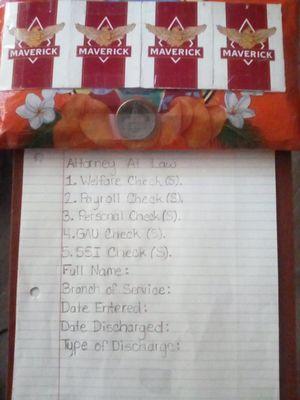 MAVERICK MAVERICK MAVERICK MAVERICK
Attorney At Law
1. Welfare Check(S).
2. Payroll Check(S).
3. Personal Check(S).
4. GAU Check(S).
5. SSI Check(S).
Full Name:
Branch of Service:
Date Entered:
Date Discharged:
Type of Discharge: